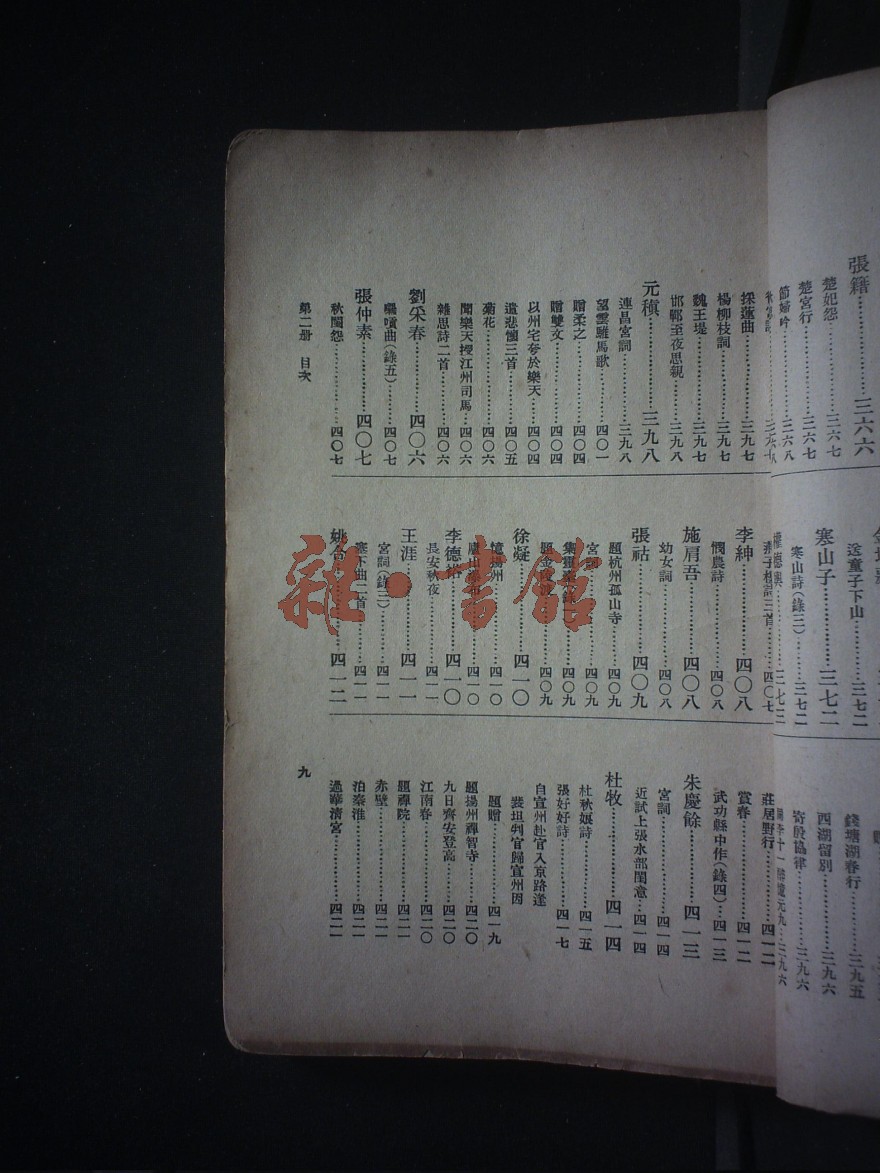 張籍……………三六六
楚妃怨……………三六七
楚宮行……………三六七
節婦吟……………三六八
寒山子……………三七二
送童子下山……………三七二
寒山詩(錄三)……………三七二
權德輿……………三七三
錢塘湖春行……………三九五
西湖留別……………三九六
寄殷協律……………三九六
採蓮曲……………三九七
楊柳枝詞……………三九七
魏王堤……………三九七
邯鄲至夜思親……………三九八
元稹……………三九八
連昌宮詞……………三九八
望雲騅馬歌……………四〇一
贈柔之……………四〇四
贈雙文……………四〇四
以州宅夸於樂天……………四〇四
遣悲懷三首……………四〇五
菊花……………四〇六
聞樂天授江州司馬……………四〇六
雜思詩二首……………四〇六
劉采春……………四〇六
囉嗊曲(錄五)……………四〇七
張仲素……………四〇七
秋閨怨……………四〇七
燕子樓詩三首……………四〇七
李紳……………四〇八
憫農詩……………四〇八
施肩吾……………四〇八
幼女詞……………四〇八
張祜……………四〇九
題杭州孤山寺……………四〇九
宮詞……………四〇九
集靈臺(錄一)……………四〇九
題金陵渡……………四〇九
徐凝……………四一〇
憶揚州……………四一〇
廬山瀑布……………四一〇
李德裕……………四一〇
長安秋夜……………四一一
王涯……………四一一
宮詞(錄三)……………四一一
塞下曲二首……………四一一
姚合……………四一二
莊居野行……………四一二
賞春……………四一二
武功縣中作(錄四)……………四一三
朱慶餘……………四一三
宮詞……………四一四
近試上張水部閨意……………四一四
杜牧……………四一四
杜秋娘詩……………四一五
張好好詩……………四一七
自宣州赴官入京路逢
裴坦判官歸宣州因
題贈……………四一九
題揚州禪智寺……………四二〇
九日齊安登高……………四二〇
江南春……………四二〇
題禪院……………四二一
赤壁……………四二一
泊秦淮……………四二一
過華清宮……………四二一
第二册 目次
九
雜·書館